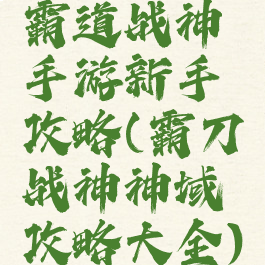 霸道战神
手游新手
攻略(霸刀
战神神域
攻略大全)